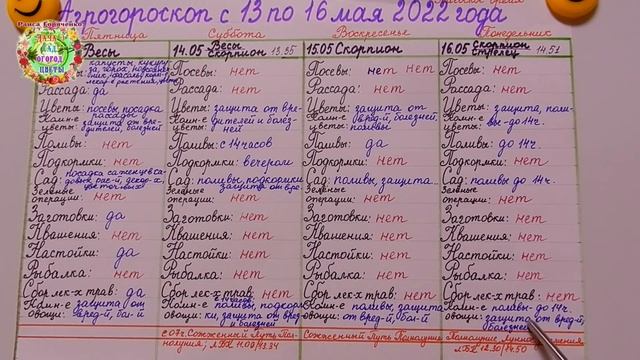 Раиса Горяченко
ДАЧА САД ОГОРОД ЦВЕТЫ
Агрогороскоп с 13 по 16 мая 2022 года
Пятница
Суббота
Воскресенье
Понедельник
Весы
капусты, кукуру-
Рассада: да
Цветы: посев, посадка
Комн-е рассады,
цветы: защита от вре-
дителей, болезней
Поливы: нет
Подкормки: нет
Сад: посадка саженцев са-
Зелёные
операции: нет
Заготовки: да
Квашения: нет
Настойки: да
Рыбалка: нет
Сбор лек-х трав: да
Комн-е защита от
овощи: вред-й, бол-й
14.05 Весы Скорпион 13.35
Посевы: нет
Рассада: нет
Цветы: защита от вре-
Комн-е дителей и болез-
цветы: ней
Поливы: с 14 часов
Подкормки: вечером
Сад: поливы, подкормки
Зелёные защита от вре-
операции: нет
Заготовки: нет
Квашения: нет
Настойки: нет
Рыбалка: нет
Сбор лек-х трав: нет
Комн-е с 14 часов поливы, подкорм-
овощи: ки, защита от вред-
и болезней
с 07ч. Сожженный Путь Пол-
нолуния;
15.05 Скорпион
Посевы: нет нет
Рассада: нет
Цветы: защита от
Комн-е вред-й, болезней,
цветы: поливы
Поливы: да
Подкормки: нет
Сад: поливы, защита
Зелёные
операции: нет
Заготовки: нет
Квашения: нет
Настойки: нет
Рыбалка: нет
Сбор лек-х трав: нет
Комн-е поливы, защита
овощи: от вред-й, бол-й
Сожженный Путь
16.05 Скорпион Стрелец 14.51
Посевы: нет
Рассада: нет
Цветы: защита, поли-
Комн-е
цветы: вы - до 14ч.
Поливы: до 14ч.
Подкормки: нет
Сад: поливы до 14ч.
Зелёные
операции: нет
Заготовки: нет
Квашения: нет
Настойки: нет
Рыбалка: нет
Сбор лек-х трав: нет
Комн-е поливы - до 14ч.
овощи: защита от вред-й,
болезней